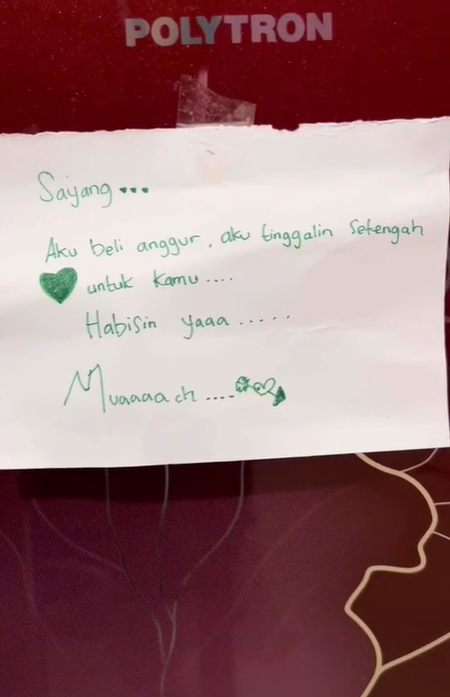 POLYTRON
Sayang...
Aku beli anggur, aku tinggalin setengah
untuk kamu....
Habisin yaaa.....
Muaaaach....